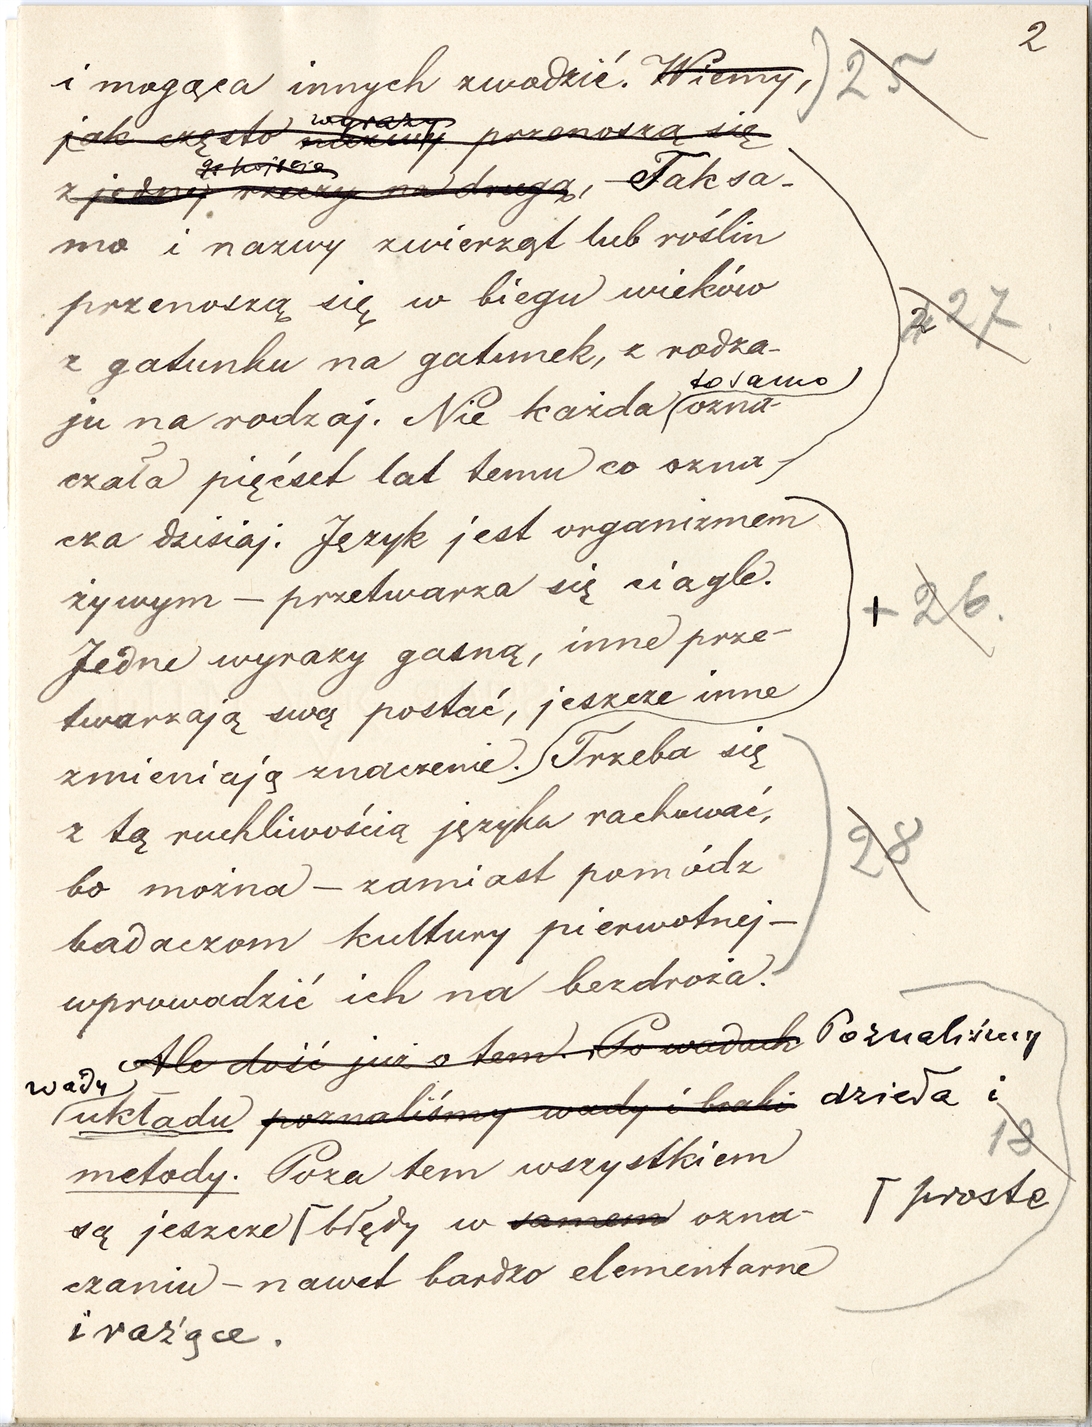 2
i mogąca innych zwodzić. Wiemy, ) 25
wyrazy
jak często nazwy przenoszą się
z jednej rzeczy na drugą, – Taksa-
mo i nazwy zwierząt lub roślin
przenoszą się w biegu wieków
27
z gatunku na gatunek, z rodza-
to samo
ju na rodzaj. Nie każda ozna-
czała pięćset lat temu co ozna-
cza dzisiaj. Język jest organizmem
żywym – przetwarza się ciągle. + 26.
Jedne wyrazy gasną, inne prze-
twarzają swą postać, jeszcze inne
zmieniają znaczenie. Trzeba się
z tą ruchliwością języka rachować,
28
bo można – zamiast pomódz
badaczom kultury pierwotnej –
wprowadzić ich na bezdroża.
Ale dość już o tem. Po wadach Poznaliśmy
wady
układu poznaliśmy wady i braki dzieła i
18
metody. Poza tem wszystkiem
są jeszcze ⌈ błędy w samem ozna- ⌈ proste
czaniu – nawet bardzo elementarne
i rażące.